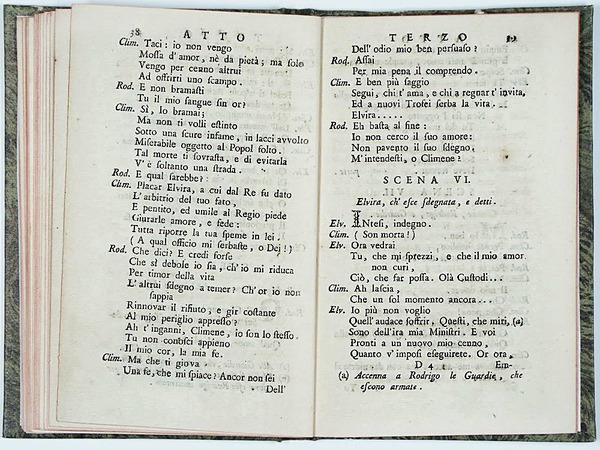 38 ATTO
Clim. Taci: io non vengo
Mossa d'amor, nè da pietà; ma solo
Vengo per cenno altrui
Ad offrirti uno scampo.
Rod. E non bramasti
Tu il mio sangue sin or?
Clim. Sì, lo bramai;
Ma non ti volli estinto
Sotto una scure infame, in lacci avvolto
Miserabile oggetto al Popol folto.
Tal morte ti sovrasta, e di evitarla
V'è soltanto una strada.
Rod. E qual sarebbe?
Clim. Placar Elvira, a cui dal Re fu dato
L'arbitrio del tuo fato,
E pentito, ed umile al Regio piede
Giurarle amore, e fede:
Tutta riporre la tua speme in lei.
( A qual officio mi serbaste, o Dei! )
Rod. Che dici? E credi forse
Che sì debole io sia, ch'io mi riduca
Per timor della vita
L'altrui sdegno a temer? Ch'or io non
sappia
Rinnovar il rifiuto, e gir costante
Al mio periglio appresso?
Ah t'inganni, Climene, io son lo stesso.
Tu non conosci appieno
Il mio cor, la mia fe.
Clim. Ma che ti giova
Una fe, che mi spiace? Ancor non sei
Dell'
TERZO
Dell' odio mio ben persuaso?
Rod. Assai
Per mia pena il comprendo.
Clim. E ben più saggio
Segui, chi t'ama, e chi a regnar t'invita,
Ed a nuovi Trofei serba la vita.
Elvira.....
Rod. Eh basta al fine:
Io non cerco il suo amore:
Non pavento il suo sdegno.
M'intendesti, o Climene?
SCENA VI.
Elvira, ch'esce sdegnata, e detti.
Elv. INtesi, indegno.
Clim. ( Son morta! )
Elv. Ora vedrai
Tu, che mi sprezzi, e che il mio amor
non curi,
Ciò, che far possa. Olà Custodi...
Clim. Ah lascia,
Che un sol momento ancora...
Elv. Io più non voglio
Quell'audace soffrir, Questi, che miri, (a)
Sono dell'ira mia Ministri. E voi
Pronti a un nuovo mio cenno,
Quanto v'imposi eseguirete. Or ora,
D 4 Em-
(a) Accenna a Rodrigo le Guardie, che
escono armate.